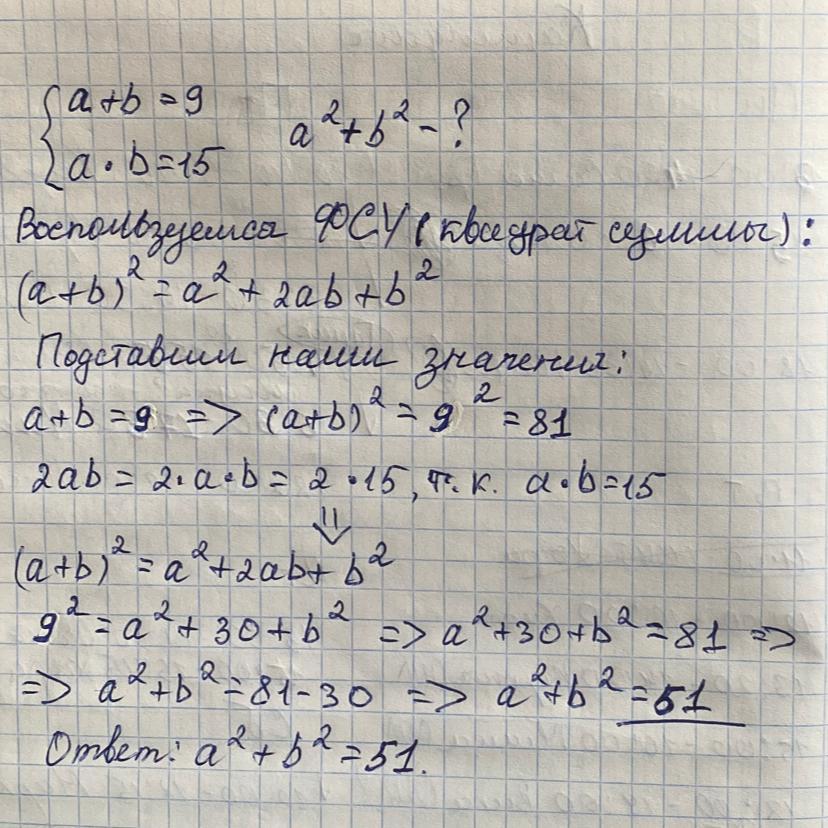 { a+b=9
a·b=15
a²+b²-?
Воспользуемся ФСУ (квадрат суммы):
(a+b)²=a²+2ab+b²
Подставим наши значения:
a+b=9 => (a+b)²=9²=81
2ab=2·a·b=2·15, т.к. a·b=15
⇓
(a+b)²=a²+2ab+b²
9²=a²+30+b² => a²+30+b²=81 =>
=> a²+b²=81-30 => a²+b²=51
Ответ: a²+b²=51.